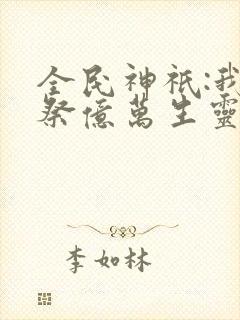 全民神祇:我
祭億萬生靈
李如林